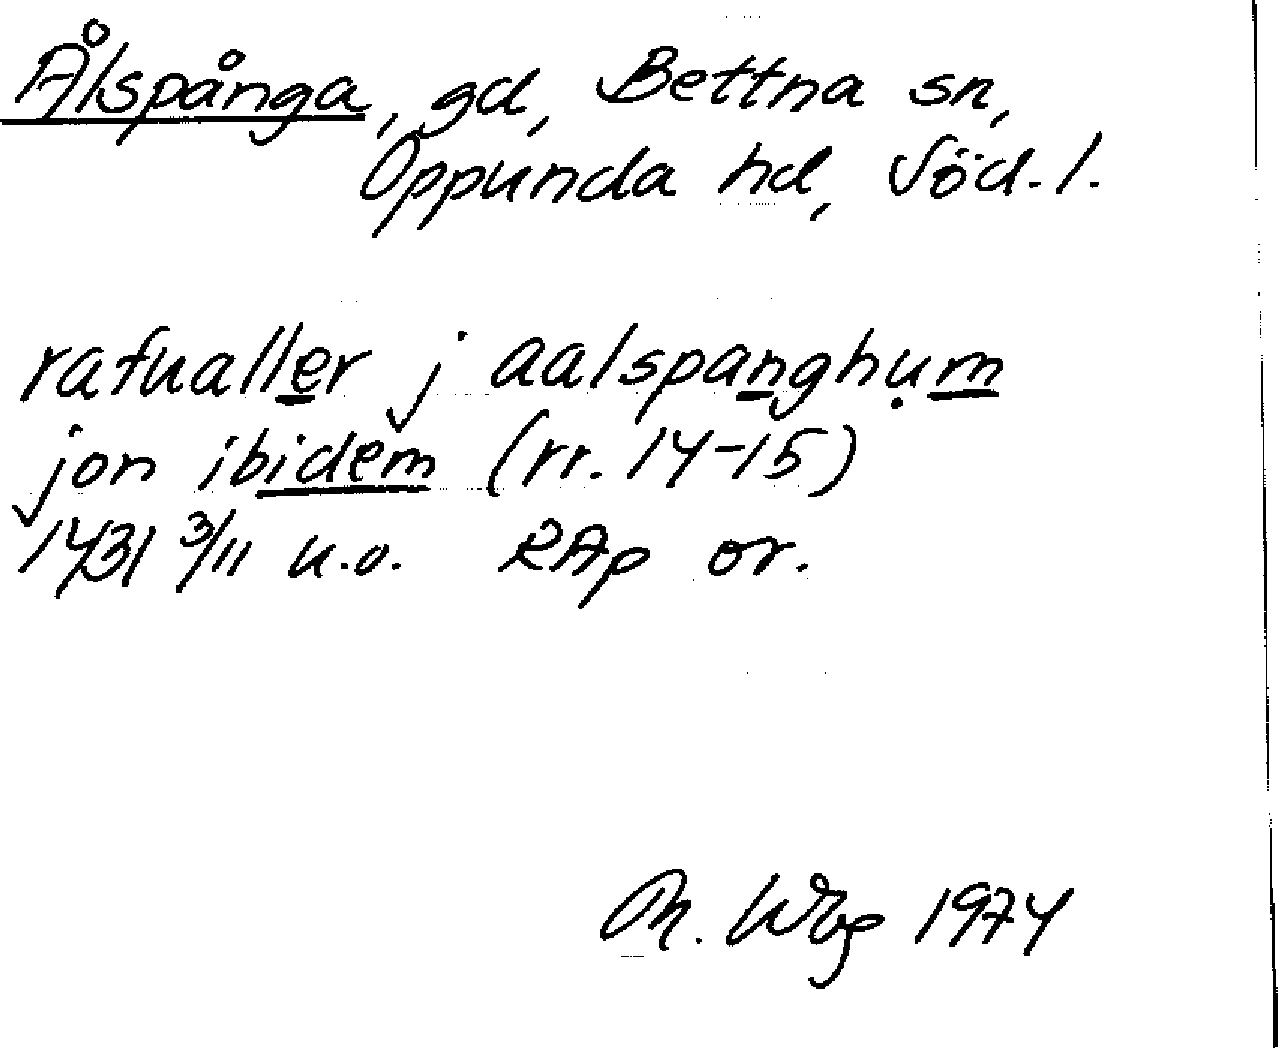 Ålspånga, gd, Bettna sn,
Oppunda hd, Söd. l.
rafualler j aalspanghụm
jon ibidem (rr. 14-15)
1431 3/11 u.o. RAp or.
1974